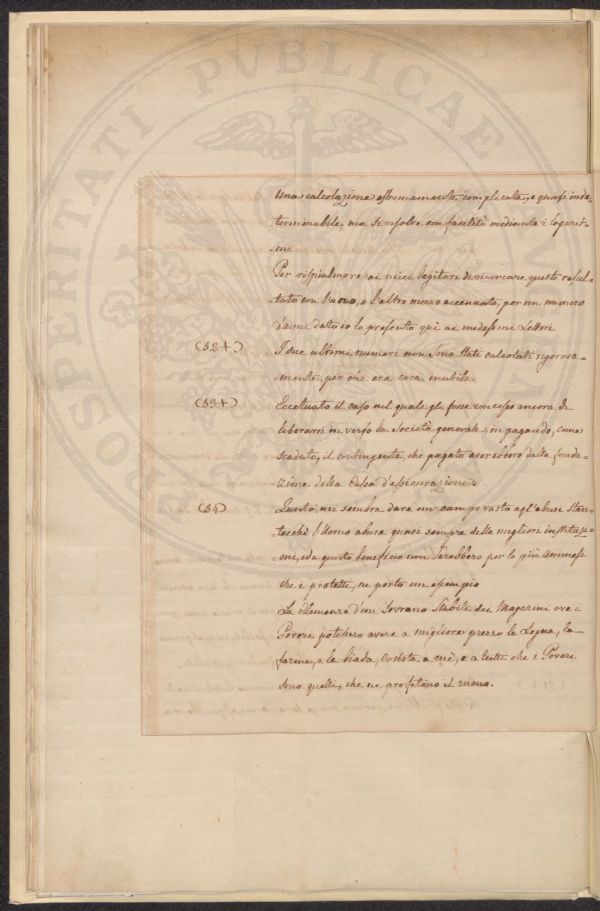 PROSPERITATI PVBLICAE
una calcolazione estremamente complicata, e quasi inde-
terminabile, ma si risolve con facilità mediante i logarit-
-mi
Per rispialmare ai miei legitori di ricercare questo resul-
tato con l'uno, o l'altro mezzo accennato, per un numero
d'anni dato io lo presento quì ai medesimi Lettori
(32+) I due ultimi numeri non sono stati calcolati rigorosa-
-mente, per che era cosa inutile.
(33+) Eccetuato il caso nel quale gli fosse concesso ancora di
liberarsi in verso la Società generale in pagando, come
scaduto, il contingente, che pagato averebbero dalla fonda-
-zione della Cassa d'assicurazione.
(34) Questo mi sembra dare un campo vasto agl'abusi Stan-
-tecchè l'Uomo abusa quasi sempre delle migliori instituzi-
-oni, e da questo beneficio non sarebbero per lo più ammessi
che i protetti, ne porto un esempio
La Clemenza d'un Sovrano stabilì dei Magazini ove i
Poveri potessero avere a migliore prezzo la Legna, la
farina, e la biada, costà a mè, e a tutti che i Poveri
sono quelli, che ne profittono il meno.